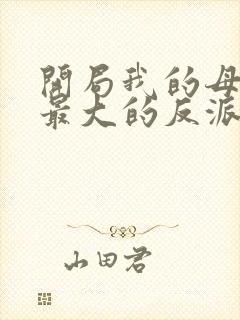 開局我的母
最大的反派
山田君